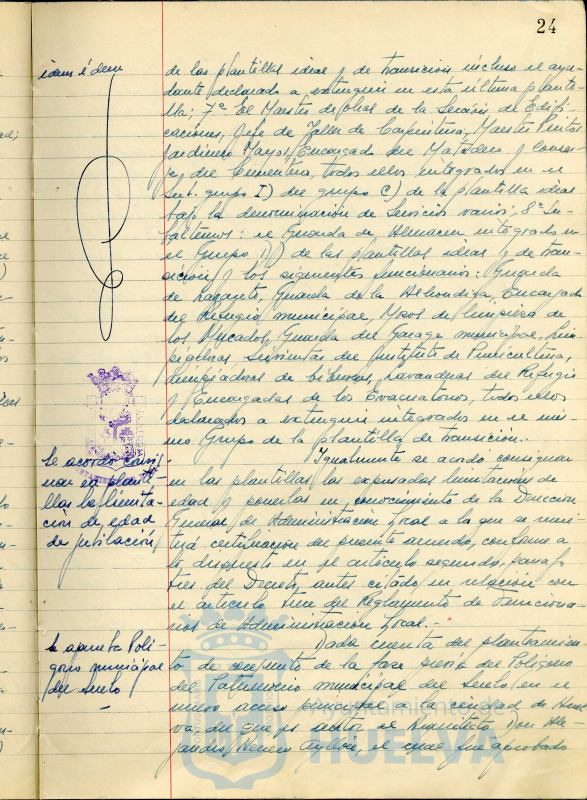 24
idem é idem
de las plantillas ideal y de transición incluso el ayu-
dante declarado a extinguir en esta última planti-
lla; 7º El Maestro de obras de la Sección de Edifi-
caciones, Jefe de Taller de Carpintería, Maestro Pintor
Jardinero Mayor, Encargado del Matadero y Conser-
je del Cementerio, todos ellos integrados en el
grupo I) del grupo C) de la plantilla ideal
bajo la denominación de Servicios varios; 8º Su-
balternos: el Guarda de Almacén integrado en
el Grupo D) de las plantillas ideal y de tran-
sición y los siguientes funcionarios: Guarda
de Guarda de la Alhóndiga, Encargado
del Refugio municipal, Mozos de limpieza de
los Mercados, Guarda del Garage municipal, Lim-
piadoras, Sirvientas del Instituto de Puericultura,
Limpiadoras de biberones, Lavanderas del Refugio
y Encargadas de los Evacuatorios, todos ellos
declarados a extinguir integrados en el mis-
mo Grupo de la plantilla de transición.-
Se acordó consig-
nar en planti-
llas la limita-
ción de edad
de jubilación
Igualmente se acordó consignar
en las plantillas las expresadas limitaciones de
edad y ponerlas en conocimiento de la Dirección
General de Administración Local a la que se remi-
tirá certificación del presente acuerdo, conforme a
lo dispuesto en el artículo segundo, párrafo
tres del Decreto antes citado en relación con
el artículo del Reglamento de Funciona-
rios de Administración Local.-
Se aprueba Polí-
gono municipal
del Suelo
Dada cuenta del planteamien-
to de conjunto de la fase previa del Polígono
del Patrimonio municipal del Suelo en el
nuevo acceso principal a la ciudad de Huel-
va, del que es autor el Arquitecto Don Ale-
jandro Herrero Ayllón, el cual fue aprobado
Ayuntamiento de
HUELVA